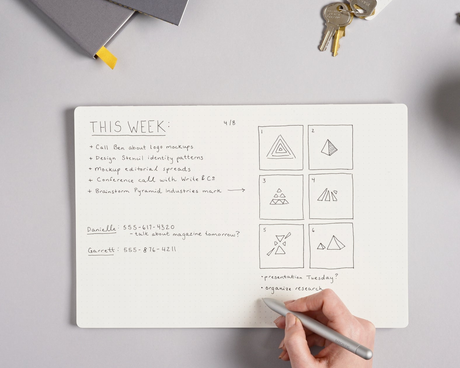 THIS WEEK:
4/8
+ Call Ben about logo mockups
+ Design Stencil identity patterns
+ Mockup editorial spreads
+ Conference call with Write & Co
+ Brainstorm Pyramid industries mark →
Danielle: 555-617-4320
- talk about magazine tomorrow?
Garrett: 555-876-4211
1
2
3
4
5
6
• presentation Tuesday?
• organise research